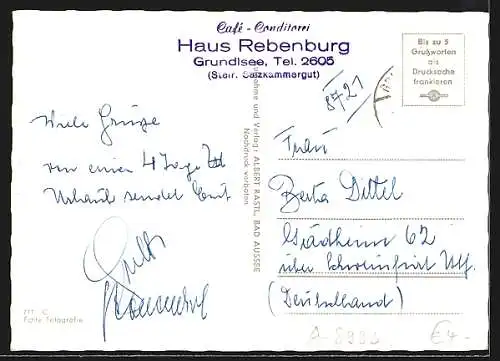 Café - Conditorei
Haus Rebenburg
Grundlsee, Tel. 2605
(Steir. Salzkammergut)
Bis zu 5
Grußworten
als
Drucksache
frankieren
8721
Viele Grüße
von einer 4 Tage
Urlaub sendet
Aufnahme und Verlag: ALBERT RASTL, BAD AUSSEE
Nachdruck verboten
Frau
Berta Dittel
Gädheim 62
über Schweinfurt
(Deutschland)
Echte Fotografie
€4.-